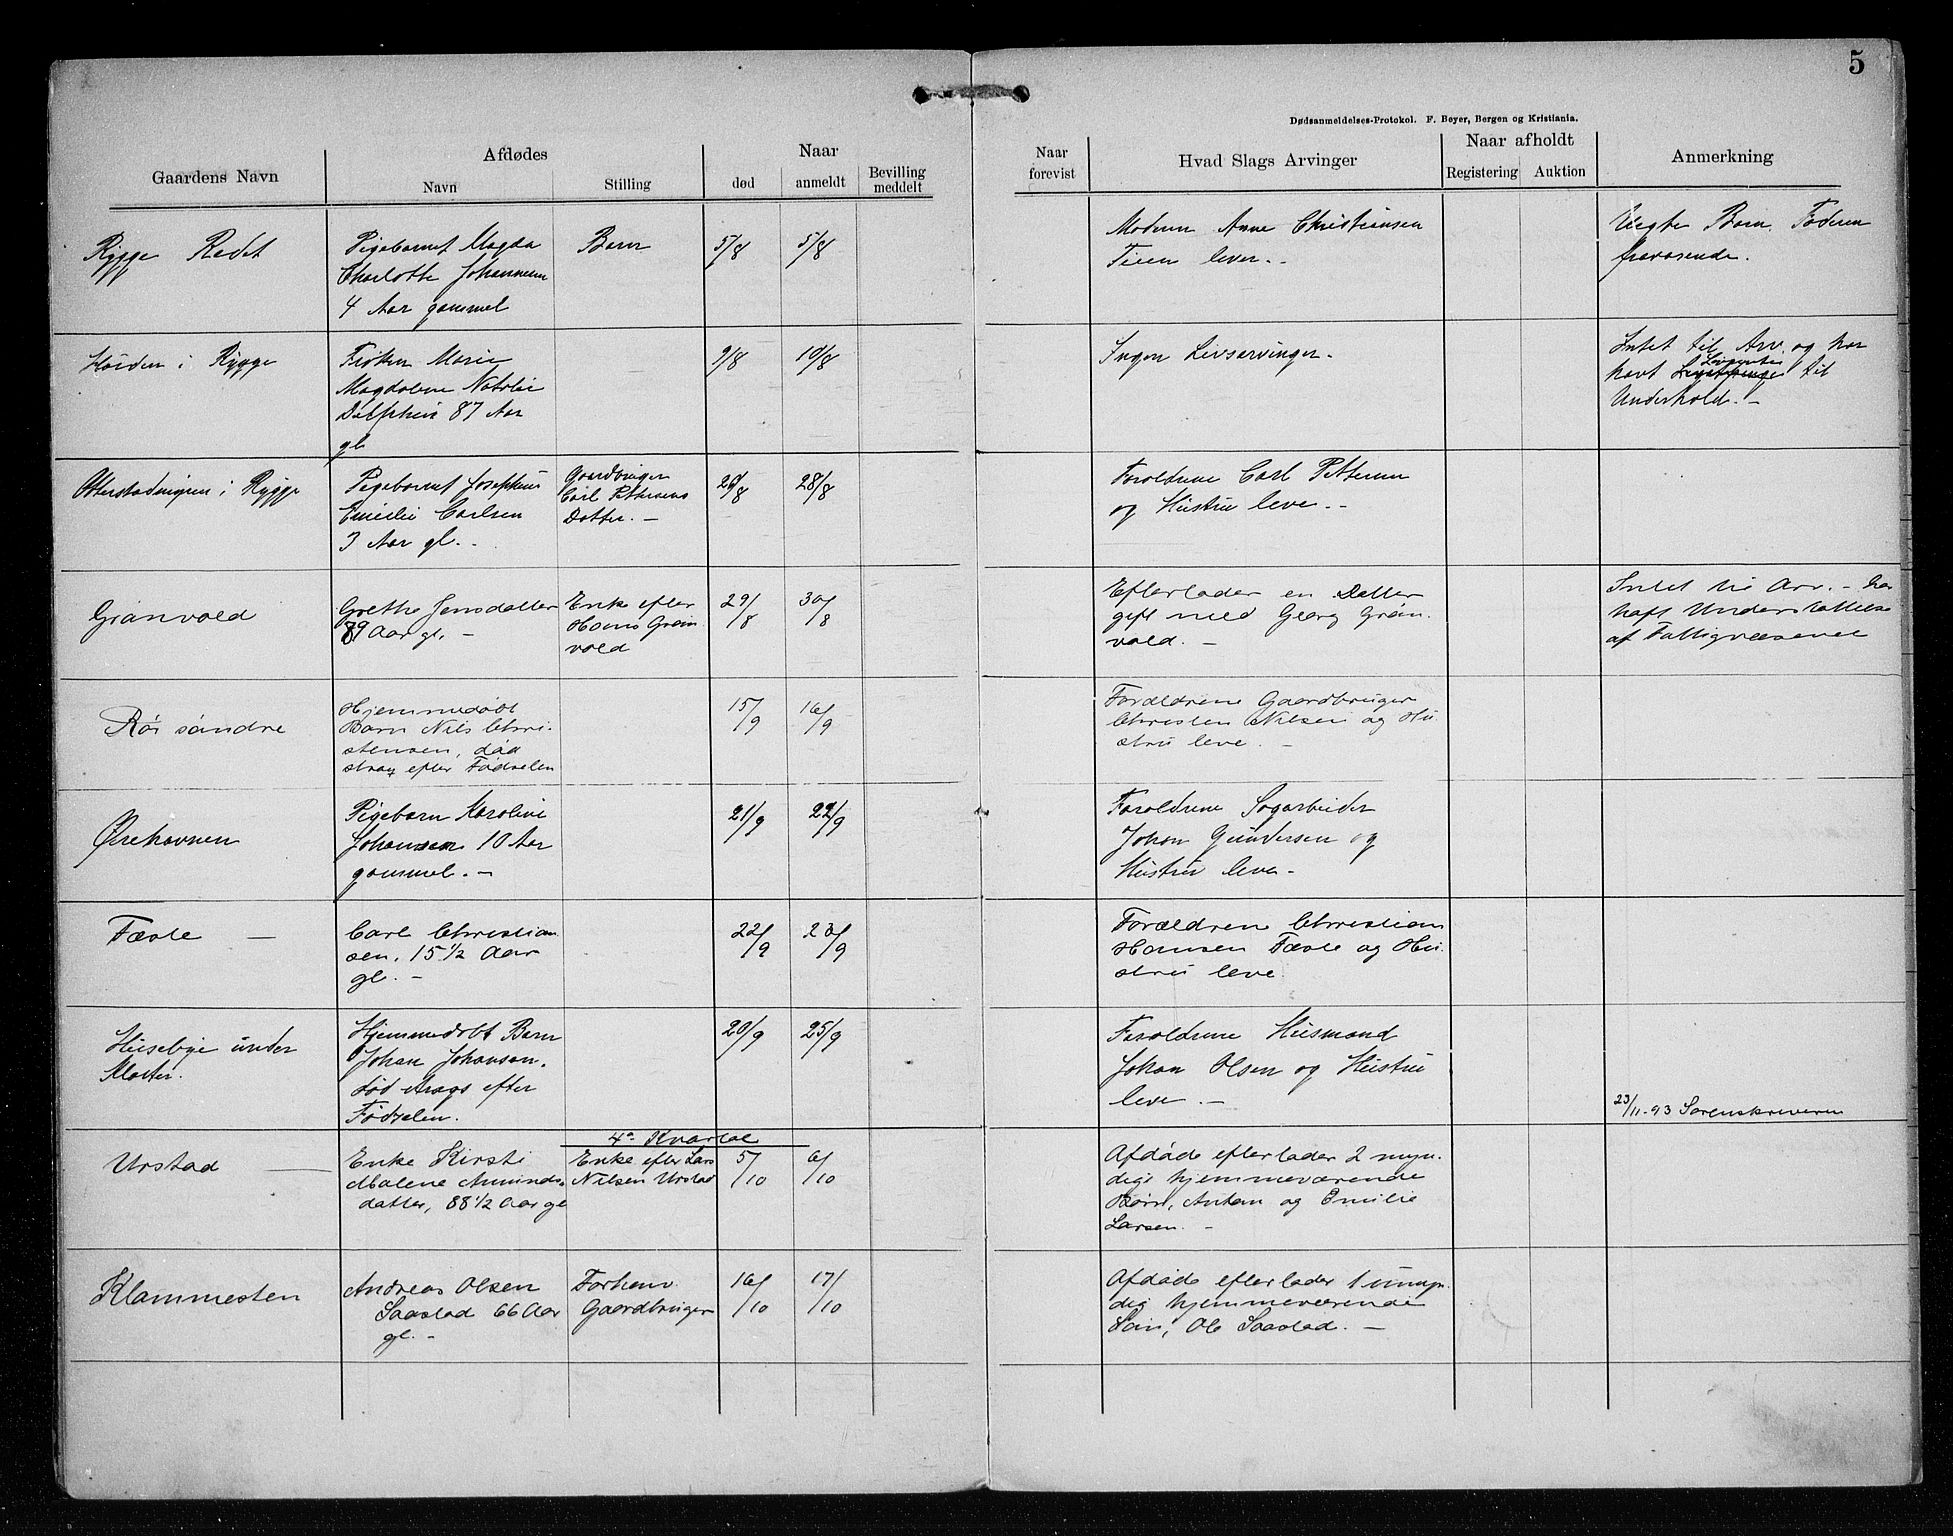 5
Dødsanmeldelses-Protokol. F. Beyer, Bergen og Kristiania.
Gaardens Navn
Afdødes
Navn
Stilling
Naar
død
anmeldt
Bevilling
meddelt
Naar
forevist
Hvad Slags Arvinger
Naar afholdt
Registering
Auktion
Anmerkning
Rygge
Pigebarnet Magda
Charlotte Johannesen
4 Aar gammel
Barn
5/8
5/8
Moderen Anne Christiansen
lever. -
Uegte Barn. Faderen
fraværende.
i Rygge
Frøken Marie
Magdalene Natalie
Dølphin 87 Aar
gl
9/8
10/8
Ingen Livsarvinger. -
Intet til Arv, og har
havt Livrente til
Underhold. -
i Rygge
Pigebarnet Josephine
Emilie Carlsen
3 Aar gl. -
Gaardbruger
Carl Pettersens
Datter. -
26/8
28/8
Forældrene Carl Pettersen
og Hustru leve. -
Grønvold
Grethe Jensdatter
89 Aar gl. -
Enke efter
Hans Grøn
vold
29/8
30/8
Efterlader en Datter
gift med Georg Grøn
vold. -
Intet til Arv. - har
haft Understøttelse
af Fattigvæsenet
Rør søndre
Hjemmedøbt
Barn Nils Chri-
stensen, død
strax efter Fødselen
15/9
16/9
Forældrene Gaardbruger
Christen Nilsen og Hu-
stru leve. -
Ørehavnen
Pigebarn Karoline
Johansen 10 Aar
gammel. -
21/9
22/9
Forældrene Sagarbeider
Johan Gundersen og
Hustru leve -
Fæste -
Carl Christian
sen, 15 1/2 Aar
gl. -
22/9
23/9
Forældren Christian
Hansen Fæste og Hu-
stru leve
Huseby under
Kloster.
Hjemmedøbt Barn
Johan Johansen.
død strags efter
Fødselen.
20/9
25/9
Forældrene Husmand
Johan Olsen og Hustru
leve. -
23/11-93 Sorenskriveren
4de Kvartal
Urstad -
Enke Kirsti
Malene Amunds-
datter, 88 1/2 Aar gl
Enke efter Lars
Nilsen Urstad
5/10
6/10
Afdøde efterlader 2 myn-
dige hjemmeværende
Børn, Anton og Emilie
Larsen. -
Klammesten
Andreas Olsen
Saastad 66 Aar
gl. -
Forhenv.
Gaardbruger
16/10
17/10
Afdøde efterlader 1 umyn-
dig hjemmeværende
Søn, Ole Saastad. -